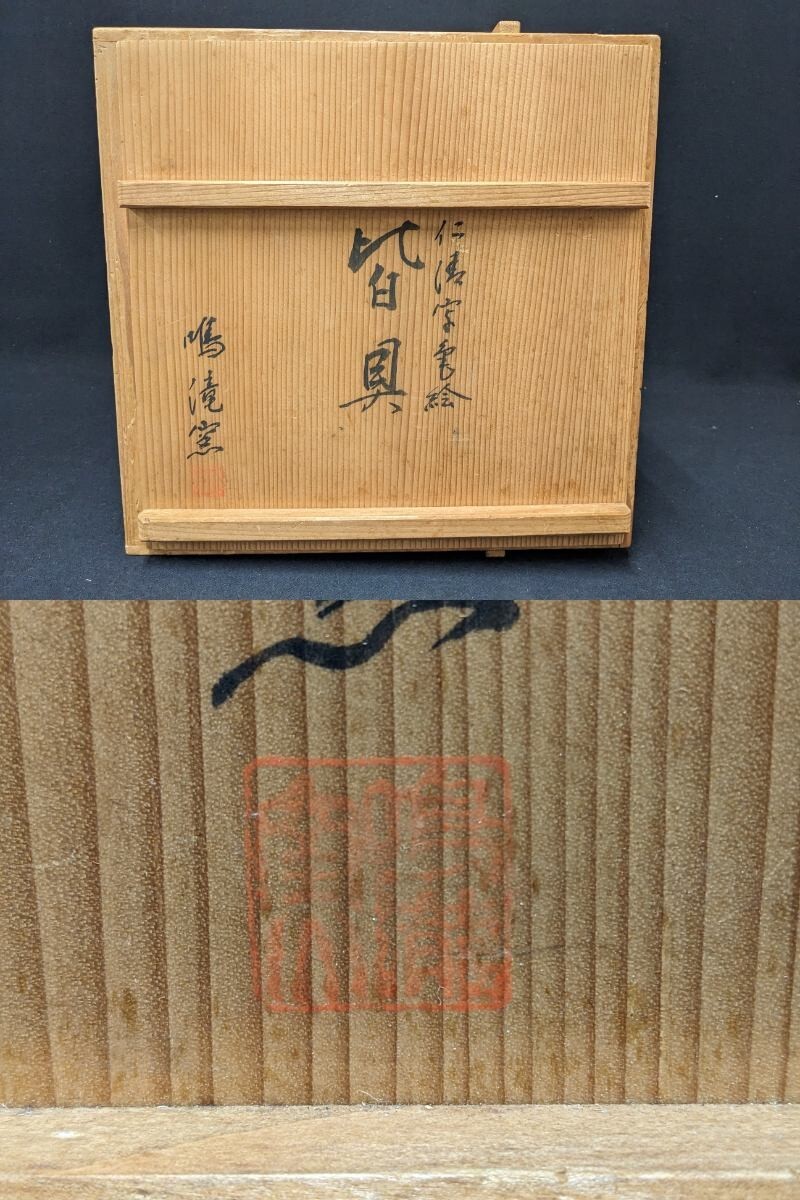 仁清写色絵
皆具
鳴滝窯